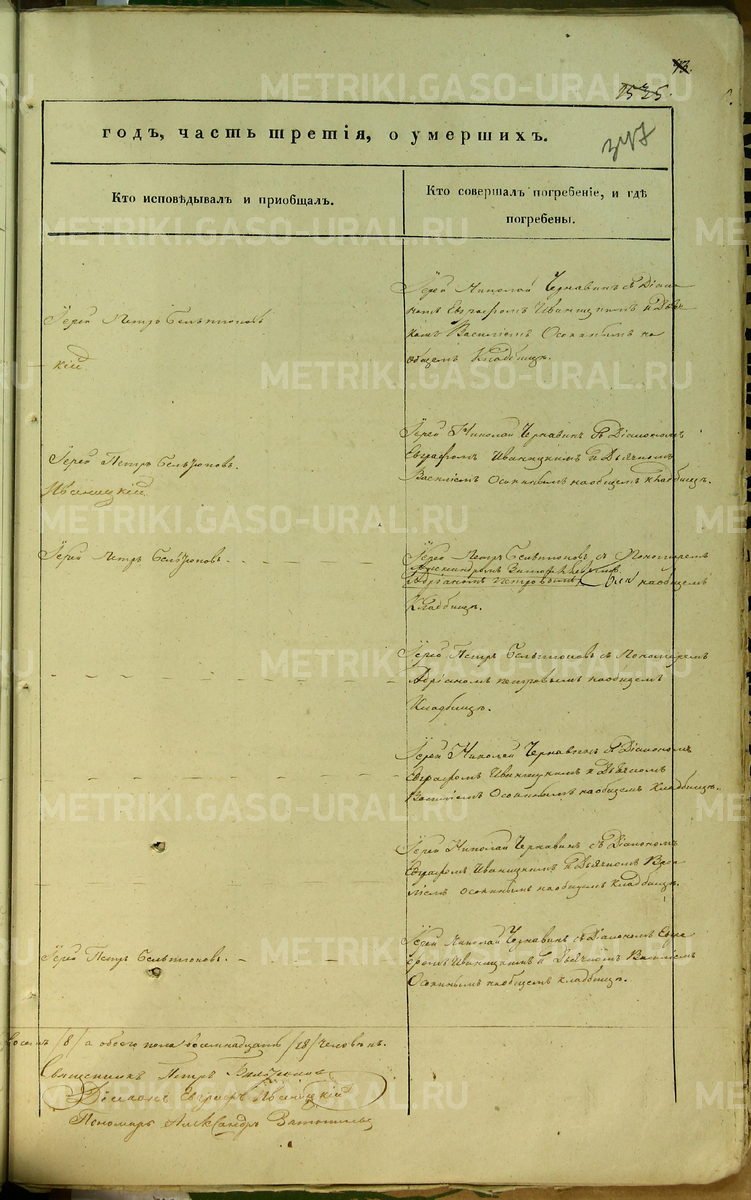 43.
1525.
347
годъ, часть третія, о умершихъ.
Кто исповѣдывалъ и приобщалъ.
Кто совершалъ погребеніе, и гдѣ
погребены.
Іерей Петръ
кій
Іерей Николай Чернавинъ съ Діако
номъ Евграфомъ Иваницкимъ и Дьяч
комъ Василіемъ Осокинымъ на
общемъ Кладбищѣ.
Іерей Петръ
Иваницкій
Іерей Николай Чернавинъ съ Діакономъ
Евграфомъ Иваницкимъ и Дьячкомъ
Василіемъ Осокинымъ на общемъ кладбищѣ.
Іерей Петръ
Іерей Петръ съ Пономаремъ
Александромъ
Адріаномъ Петровымъ на общемъ
Кладбищѣ.
Іерей Петръ съ Пономаремъ
Адріаномъ Петровымъ на общемъ
Кладбищѣ.
Іерей Николай Чернавинъ съ Діакономъ
Евграфомъ Иваницкимъ и Дьячкомъ
Василіемъ Осокинымъ на общемъ Кладбищѣ.
Іерей Николай Чернавинъ съ Діакономъ
Евграфомъ Иваницкимъ и Дьячкомъ Васи
ліемъ Осокинымъ на общемъ Кладбищѣ.
Іерей Петръ
Іерей Николай Чернавинъ съ Діакономъ Евгра
фомъ Иваницкимъ и Дьячкомъ Василіемъ
Осокинымъ на общемъ кладбищѣ.
/8/ а обоего пола восемнадцать /18/ человѣкъ.
Священникъ Петръ
Діаконъ Евграфъ Иваницкій
Пономарь Александръ
METRIKI.GASO-URAL.RU